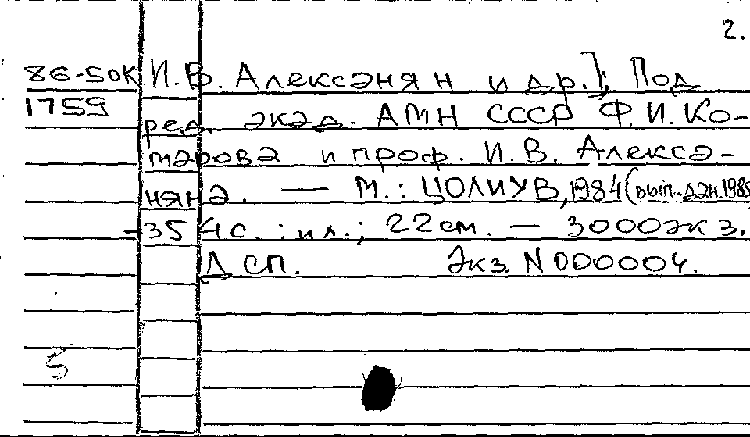 2.
86-50К И.В. Алексанян и др.]; Под
1759 ред. акад. АМН СССР Ф.И. Ко-
марова и проф. И.В. Алекса-
няна. — М.: ЦОЛИУВ, 1984 (вып. дан. 1985
-354с.: ил.; 22см. — 3000экз.
ДСП. Экз. N 000004.
5